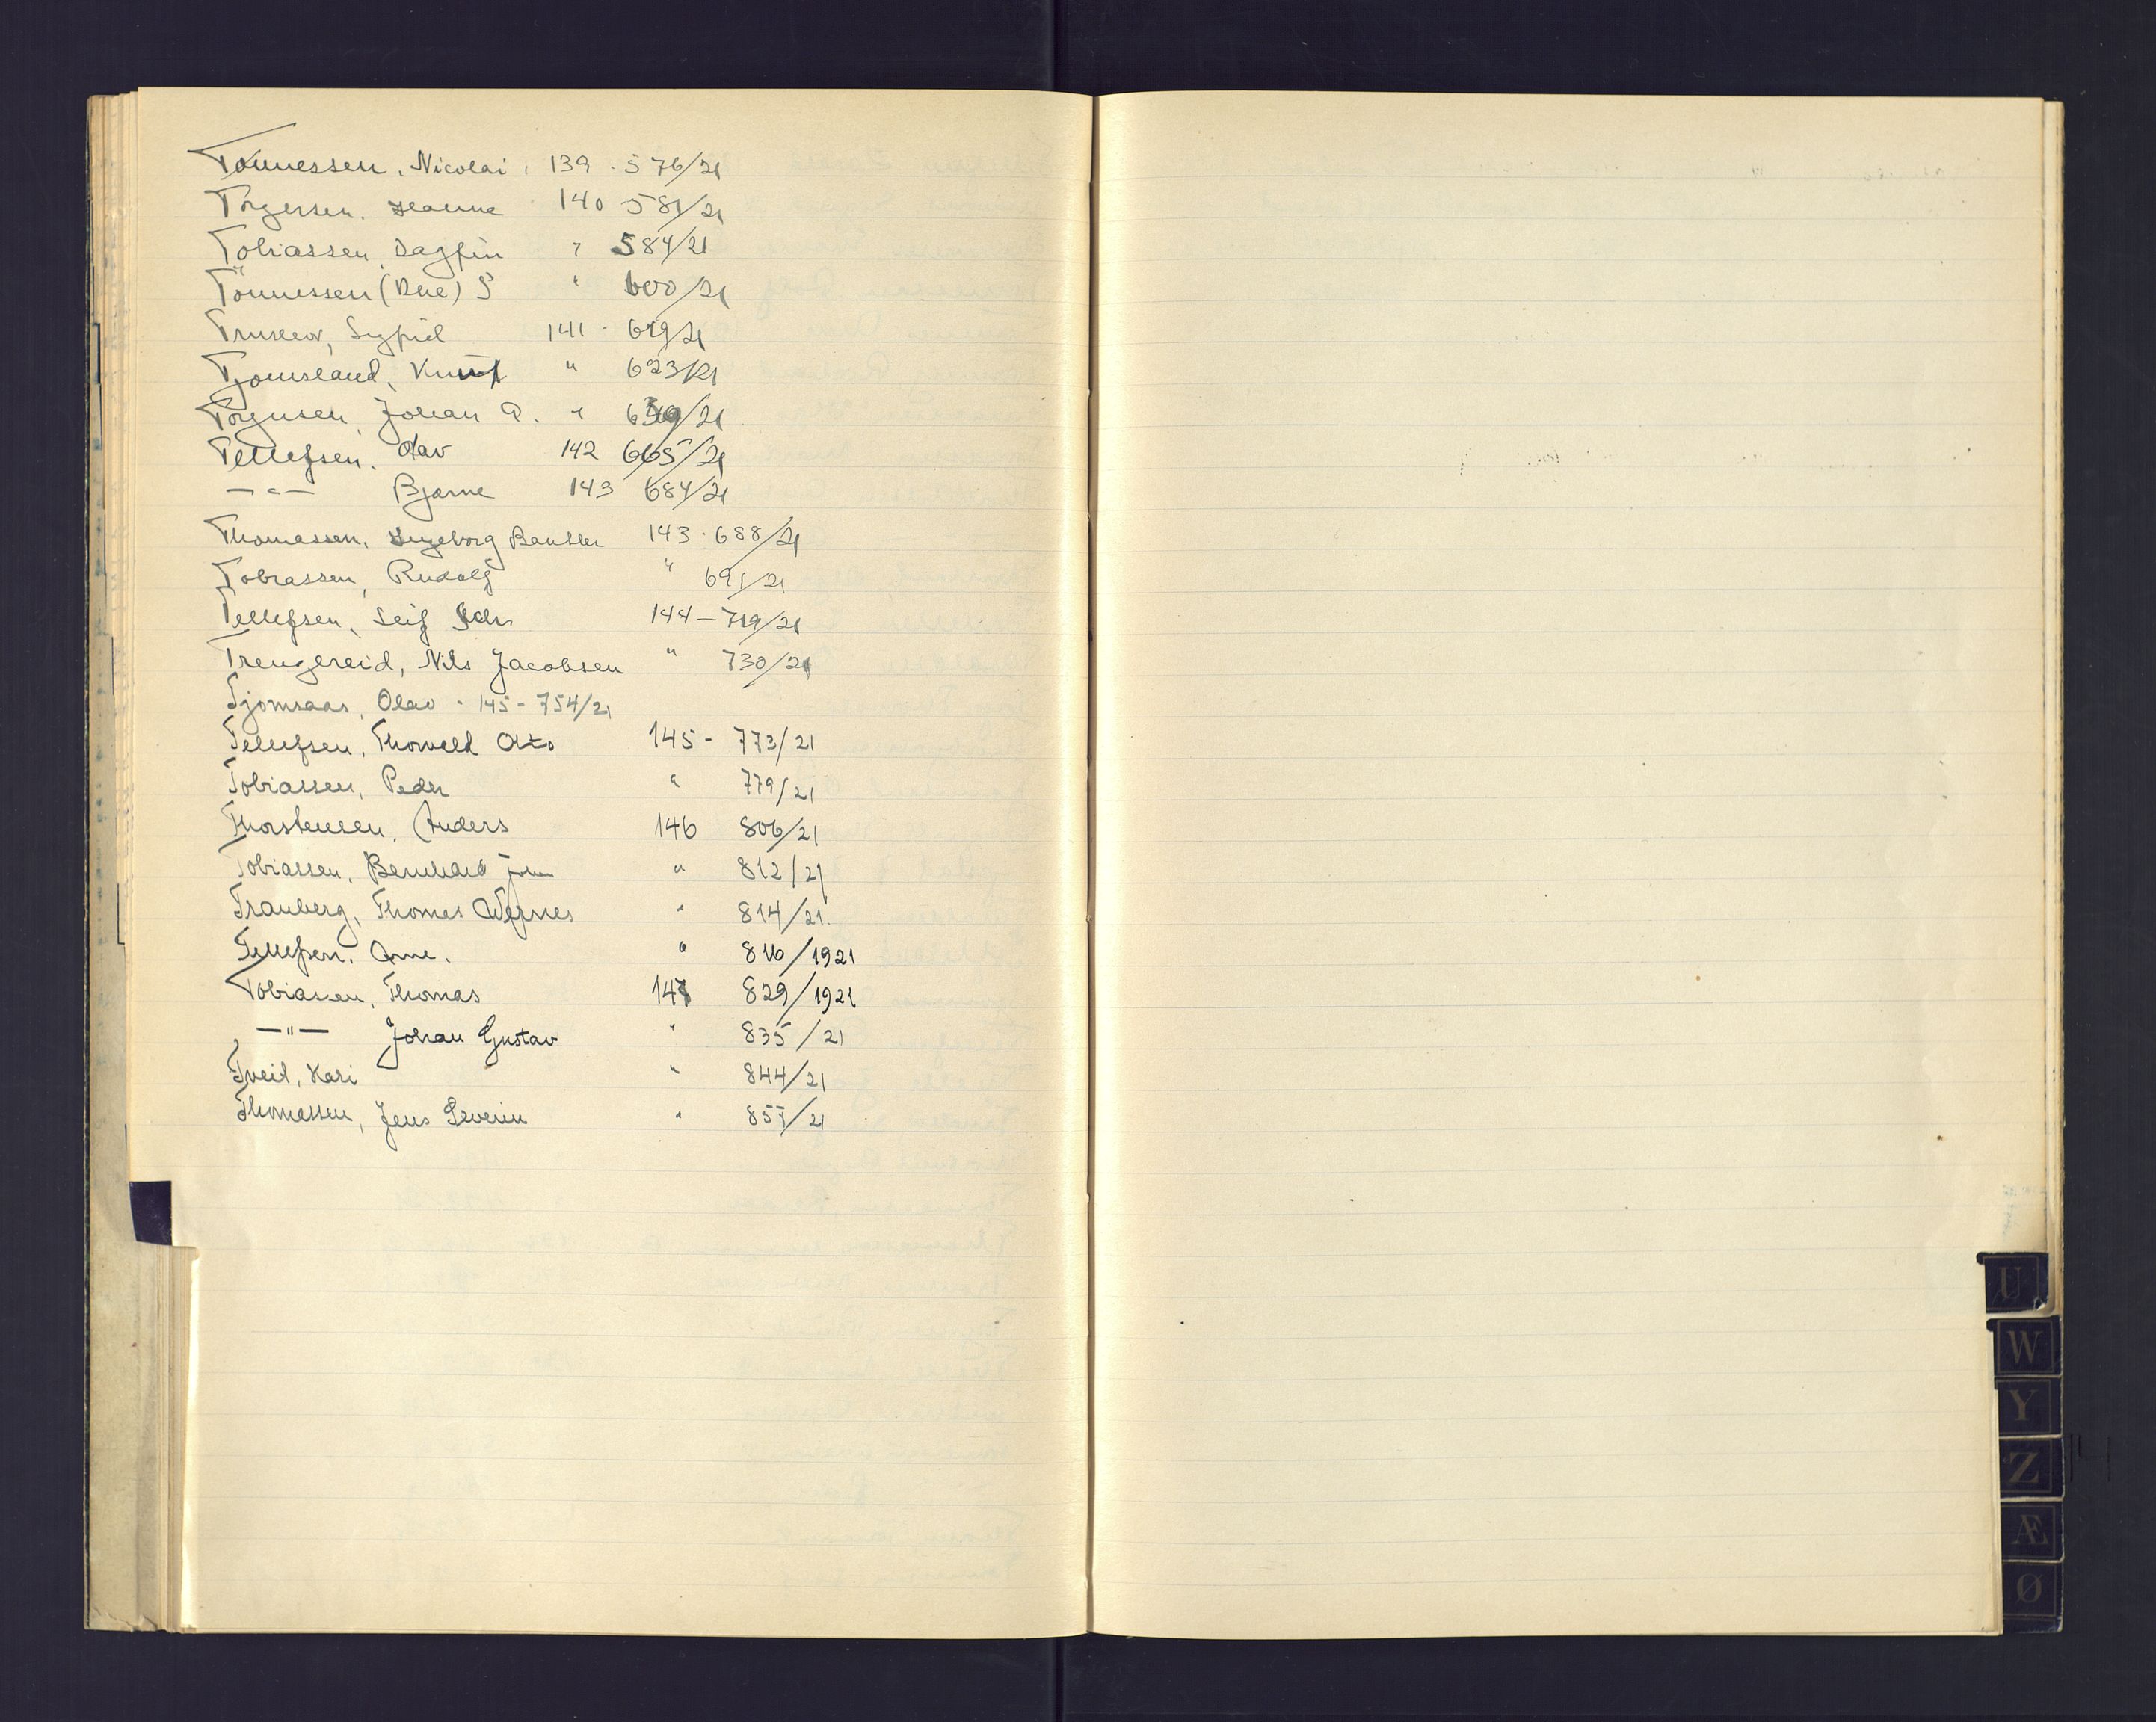 Tönnessen, Nicolai, 139 - 576/21
Torgersen, Hanne 140 581/21
Tobiassen, Dagfin " 584/21
Tönnessen (Due) S " 600/21
Sigfrid 141 - 619/21
Tjomsland, Knut " 623/21
Torgersen, Johan A. " 639/21
Tellefsen, Olav 142 665/21
— " — Bjarne 143 684/21
Thomassen, Ingeborg 143 - 688/21
Tobiassen, Rudolf " 691/21
Tellefsen, Leif 144 — 719/21
Trengereid, Nils Jacobsen " 730/21
Tjomsaas, Olav - 145 - 754/21
Tellefsen, Thorvald Otto 145 - 773/21
Tobiassen, Peder " 779/21
Thorstensen, Anders 146 806/21
Tobiassen, Bernhard John " 812/21
Tranberg, Thomas " 814/21.
Tellefsen, Arne. " 816/1921
Tobiassen, Thomas 147 829/1921
— " — Johan Gustav " 835/21
Tveit, Kari " 844/21
Thomassen, Jens Severin " 857/21
U
W
Y
Z
Æ
Ø